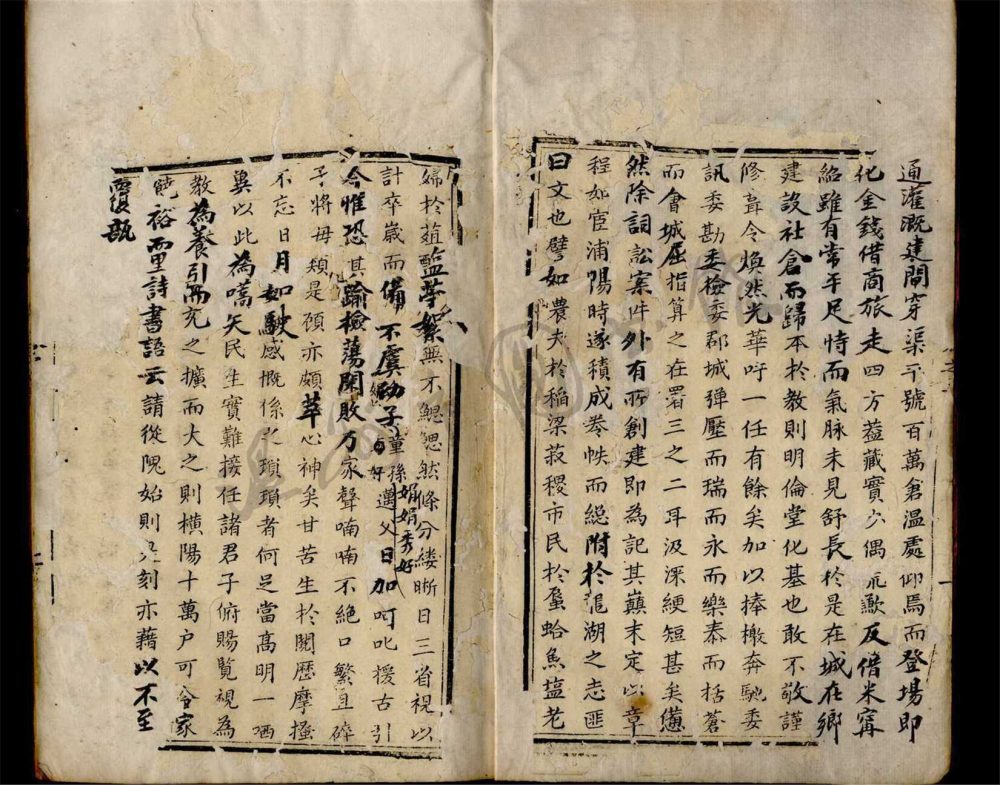 通灌溉建閘穿渠平號百萬倉溫處仰焉而登場即
化金錢借商旅走四方蓋藏實少偶荒歉反借米甯
紹雖有常平足恃而氣脉未見舒長於是在城在鄉
建設社倉而歸本於教則明倫堂化基也敢不敬謹
修葺令煥然光華吁一任有餘矣加以捧檄奔馳委
訊委勘委檢委郡城彈壓而瑞而永而樂泰而括蒼
而會城屈指算之在署三之二耳汲深綆短甚矣憊
然除詞訟案件外有所創建即為記其巔末定以章
程如宦浦陽時遂積成卷帙而總附於龍湖之志匪
曰文也譬如農夫於稻梁菽稷市民於蜃蛤魚塩老
婦於葅醢荢繁無不鰓鰓然條分縷晰日三省視以
計卒歲而備不虞勖子童孫娟娟秀好邁父日加呵叱援古引
今惟恐其踰檢蕩閑敗乃家聲喃喃不絕口繁且碎
子將毋類是顧亦頗萃心神矣甘苦生於閱歷摩搔
不忘日月如駛感慨係之瑣瑣者何足當高明一哂
冀以此為嚆矢民生實難接任諸君子俯賜覽視為
教為養引而充之擴而大之則橫陽十萬户可令家
饒裕而里詩書語云請從隗始則是刻亦藉以不至
覆瓿